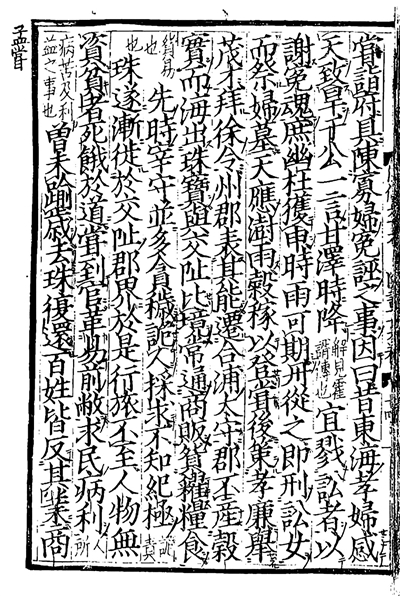 嘗詣府具陳寡婦冤誣之事因曰昔東海孝婦感
天致旱于公一言甘澤時降解見霍諝傳也宜戮訟者以
謝冤魂庶幽枉獲申時雨可期丹從之即刑訟女
而祭婦墓天應澍雨穀稼以登嘗後策孝廉舉
茂才拜徐令州郡表其能遷合浦太守郡不產穀
實而海出珠寶與交阯比境常通商販貿糴糧食
貿易也先時宰守並多貪穢詭人採求不知紀極詭責
也珠遂漸徙於交阯郡界於是行旅不至人物無
資貧者死餓於道嘗到官革易前敝求民病利人所
病苦及利益之事也曾未踰歲去珠復還百姓皆反其業商
孟嘗